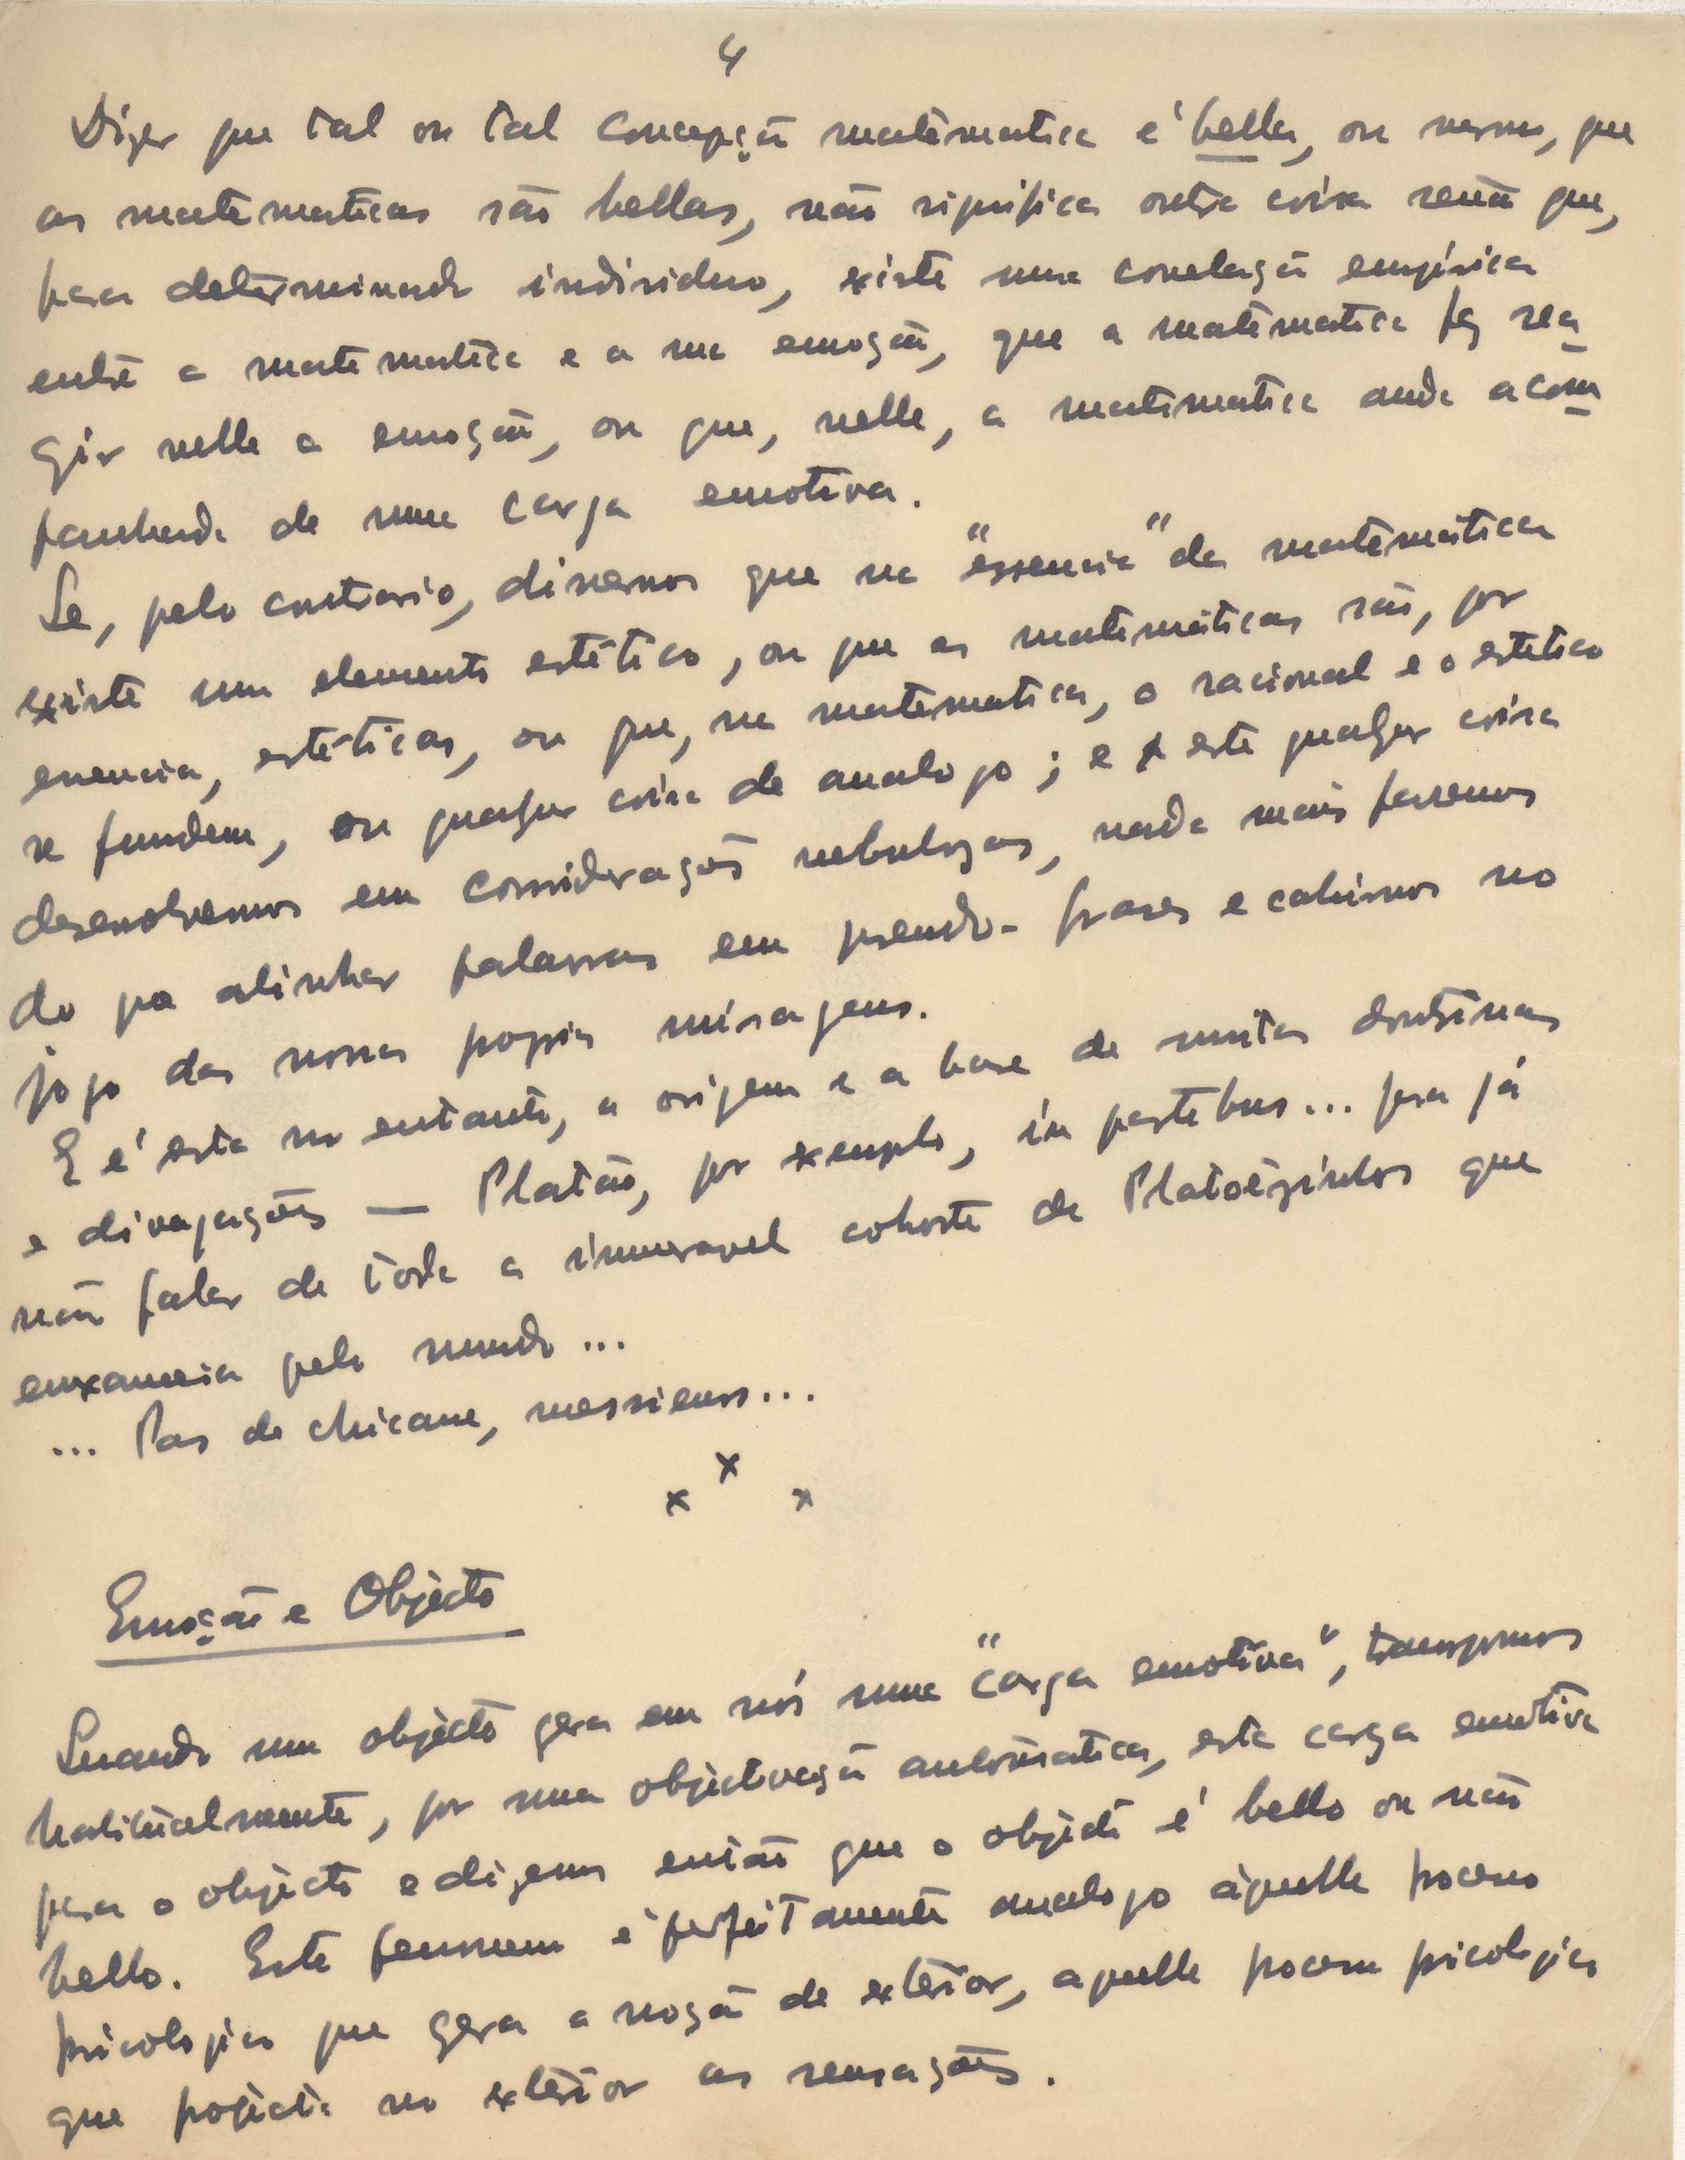 4
Dizer que tal ou tal concepção matematica é bella, ou mesmo, que
as matematicas são bellas, não significa outra coisa senão que,
para determinado individuo, existe uma correlação empirica
entre a matematica e a sua emoção, que a matematica faz rea
gir nelle a emoção, ou que, nelle, a matematica anda acom
panhada de uma carga emotiva.
Se, pelo contrario, dissermos que na "essencia" da matemática
existe um elemento estético, ou que as matemáticas são, por
essencia, estéticas, ou que, na matematica, o racional e o estetico
se fundem, ou qualquer coisa de analogo; e este qualquer coisa
desenvolvemos em considerações nebulozas, nada mais faremos
do que alinhar palavras em pseudo-frases e cahimos no
jogo das nossas proprias miragens.
E é esta no entanto, a origem e a base de muitas doutrinas
e divagações — Platão, por exemplo, in partibus... para já
não falar de toda a inumeravel cohorte de Platõezinhos que
enxameia pelo mundo...
... Pas de chicane, messieurs...
x x x
Emoção e Objecto
Quando um objecto gera em nós uma "carga emotiva", transpomos
habitualmente, por uma objectivação automatica, esta carga emotiva
para o objecto e dizemos então que o objecto é bello ou não
bello. Este fenomeno é perfeitamente analogo àquelle processo
psicologico que gera a noção de exterior, aquelle processo psicologico
que projecta no exterior as sensações.